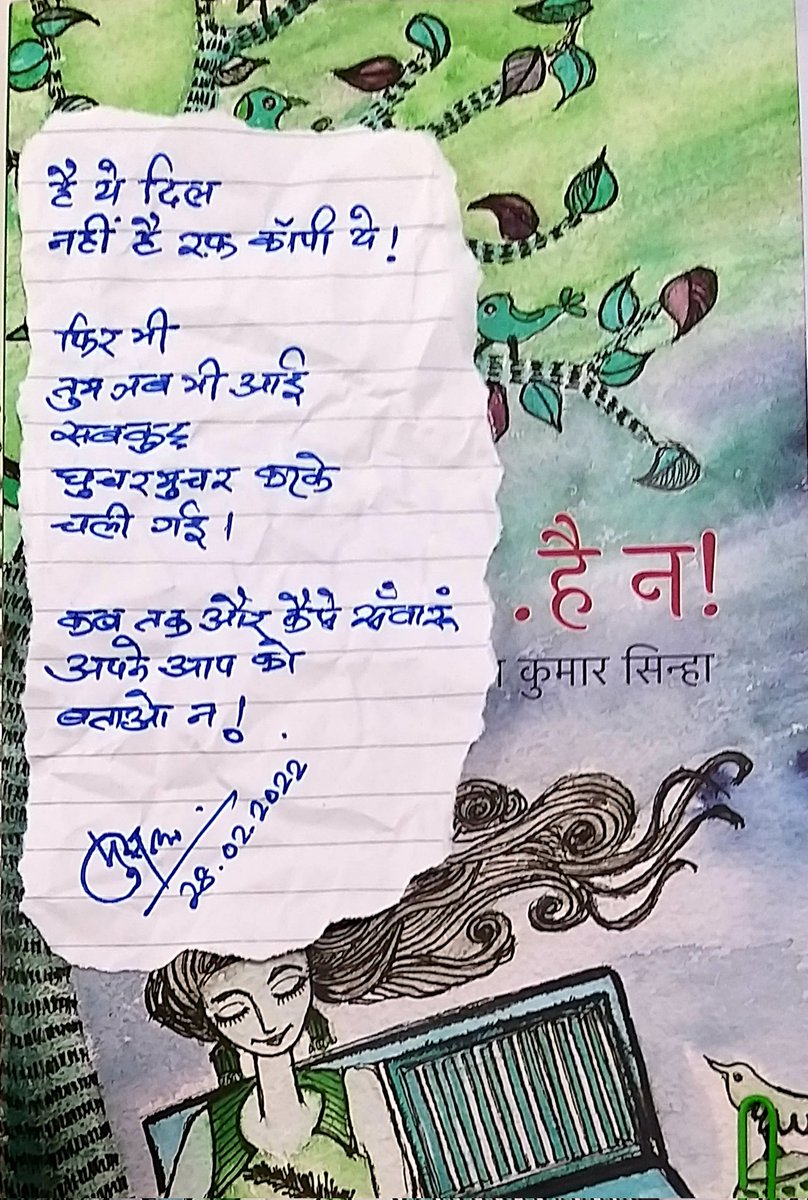 है ये दिल
नहीं है रफ़ कॉपी ये!
फिर भी
तुम जब भी आई
सबकुछ
घुचरमुचर करके
चली गई।
कब तक और कैसे सँवारूं
अपने आप को
बताओ न!
28.02.2022
.है न!
कुमार सिन्हा